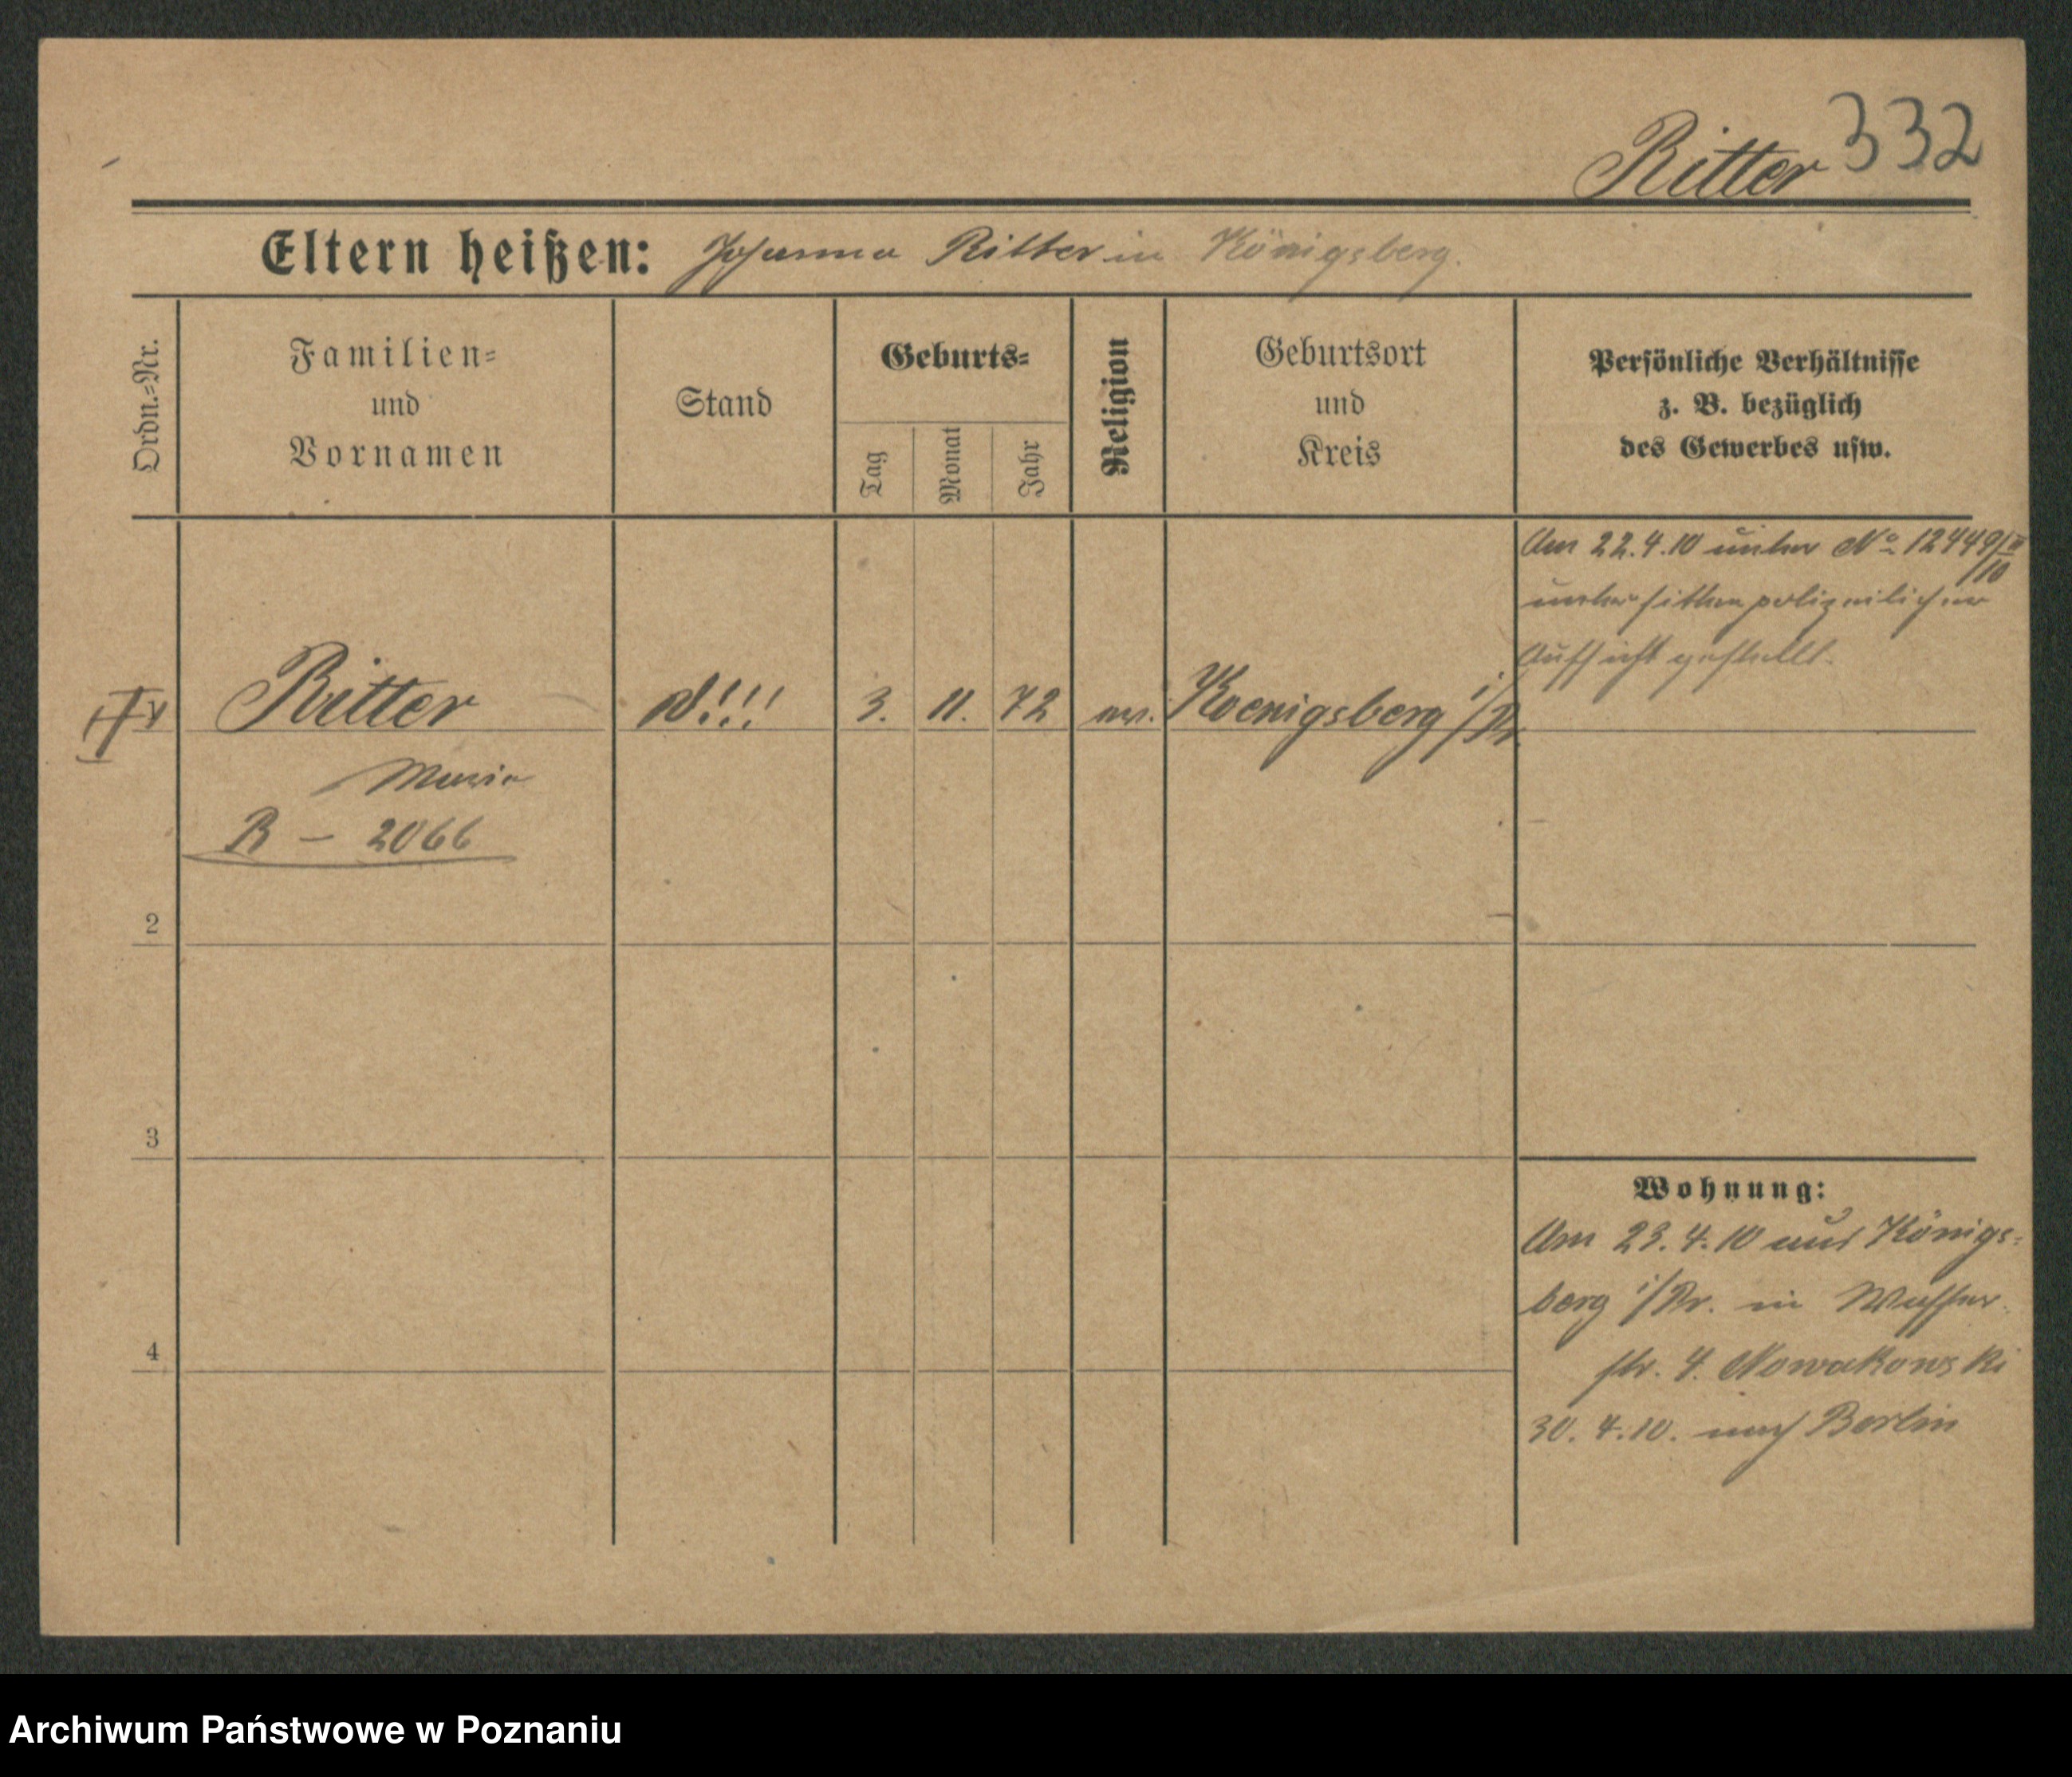 Ritter 332
Eltern heißen: Johanna Ritter in Königsberg.
Ordn.=Nr.
Familien=
und
Vornamen
Stand
Geburts=
Tag
Monat
Jahr
Religion
Geburtsort
und
Kreis
Persönliche Verhältnisse
z. B. bezüglich
des Gewerbes usw.
Am 22.4.10 unter No 12449/II
/10
unter sittenpolizeilicher
Aufsicht gestellt.
Ritter !!! 3. 11. 72 ev. Koenigsberg i/Pr.
Maria
R – 2066
2
3
4
Wohnung:
Am 23.4.10 aus Königs=
berg i/Pr. in Wasser
str. 4. Nowakowski
30.4.10. nach Berlin
Archiwum Państwowe w Poznaniu